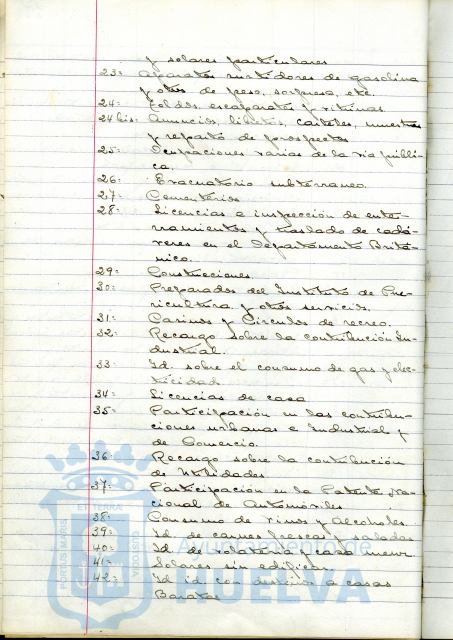 y solares particulares
23= Aparatos surtidores de gasolina
y otros de peso, sorpresa, etc.
24= Toldos, escaparates y vitrinas
24 bis= Anuncios, libretos, carteles, muestras
y reparto de prospectos
25= Ocupaciones varias de la vía públi-
ca.
26= Evacuatorio subterraneo.
27= Cementerios
28= Licencias e inspección de ente-
rramientos y traslado de cadá-
veres en el Departamento Britá-
nico.
29= Construcciones.
30= Preparados del Instituto de Pue-
ricultura y otros servicios.
31= Casinos y Circulos de recreo.
32= Recargo sobre la contribución In-
dustrial.
33= Id. sobre el consumo de gas y elec-
tricidad
34= Licencias de casa
35= Participación en las contribu-
ciones urbanas e Industrial y
de Comercio.
36= Recargo sobre la contribución
de Utilidades
37= Participación en la Patente Na-
cional de Automóviles
38= Consumo de vinos y Alcoholes.
39= Id. de carnes frescas y saladas
40= Id. de volateria y caza menor
41= Solares sin edificar.
42= Id id con destino a casas
Baratas
PORTUS MARIS
ET TERRÆ
CUSTODIA
HUELVA